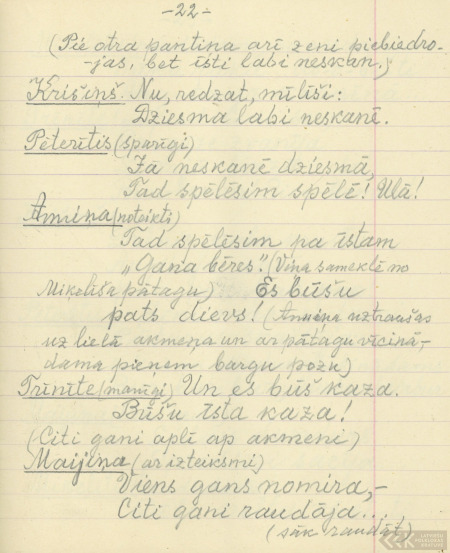 -22-
(Pie otra pantiņa arī zeni piebiedro-
-jas, bet īsti labi neskan.)
Krišiņš. Nu, redzat, mīlīši:
Dziesma labi neskanē.
Pēterītis (sparīgi)
Jā neskanē dziesmā,
Tad spēlēsim spēlē! Ulā!
Anniņa (noteikti)
Tad spēlēsim pa īstam
„Gana bēres". (Viņa sameklē no
Mikeliša pātagu) Es būšu
pats dievs! (Anniņa uztraušas
uz lielā akmeņa un ar pātagu vicinā-
dama pieņem bargu pozu)
Trīnīte (manīgi) Un es būš kaza.
Būšu īsta kaza!
(Citi gani aplī ap akmeni)
Maijiņa (ar izteiksmi)
Viens gans nomira,-
Citi gani raudāja...
(sāk raudāt)